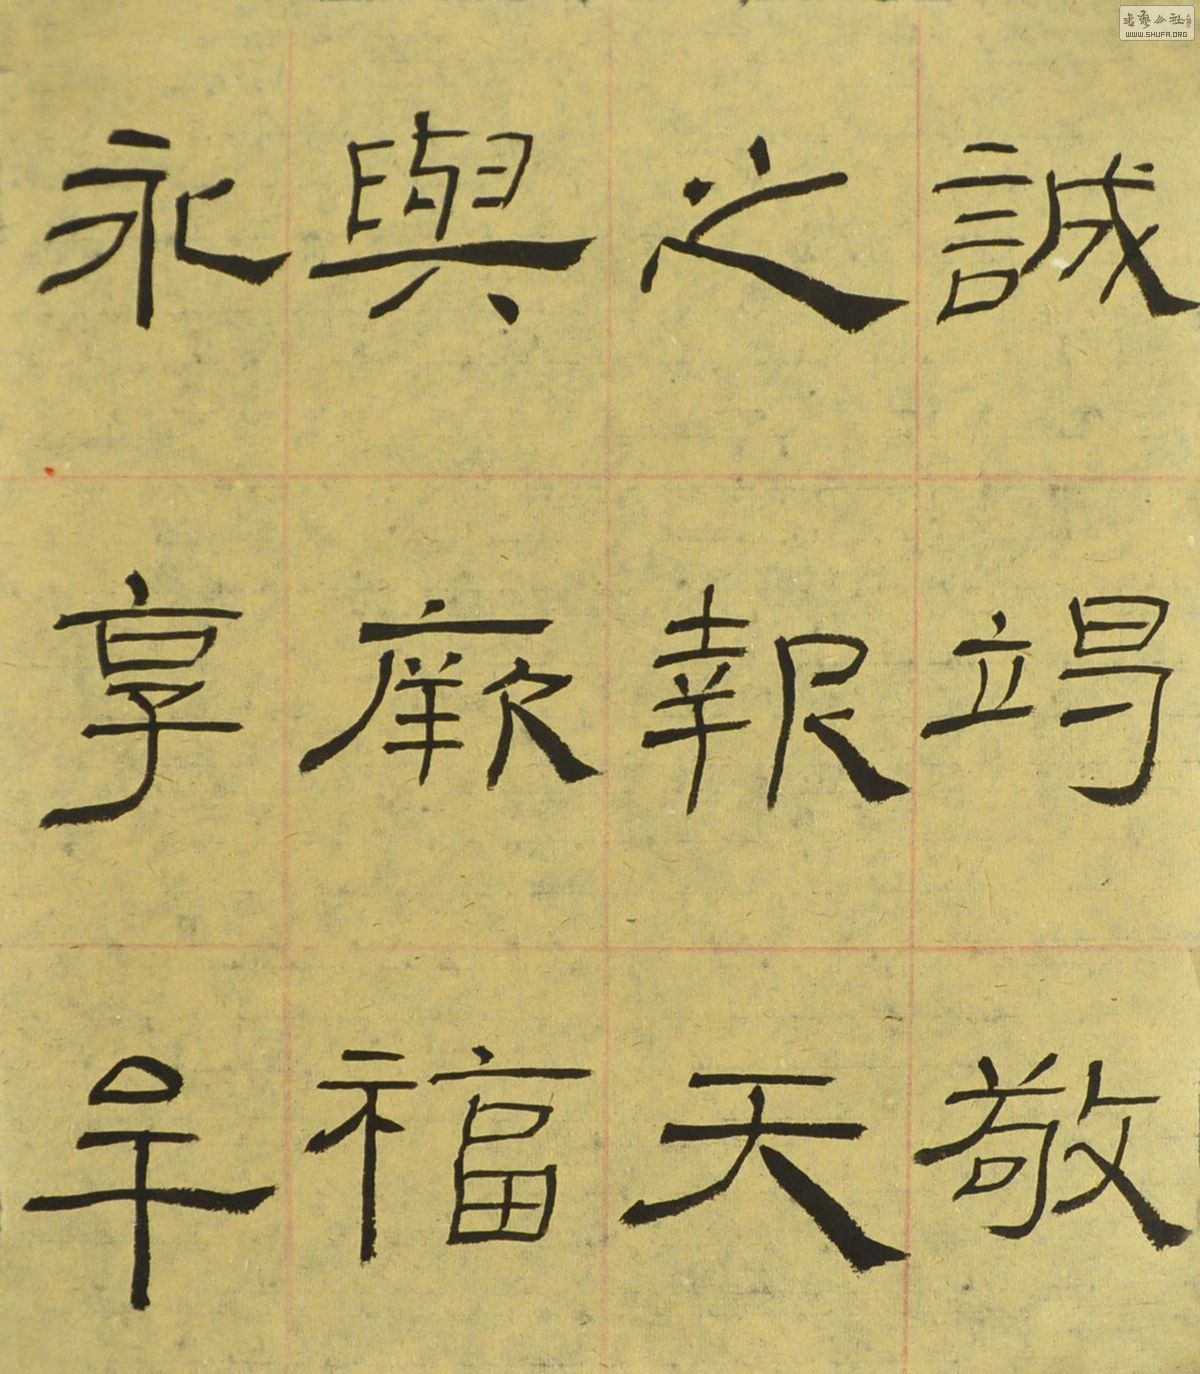 誠竭敬
之報天
與厥福
永享牟
書藝公社
WWW.SHUFA.ORG